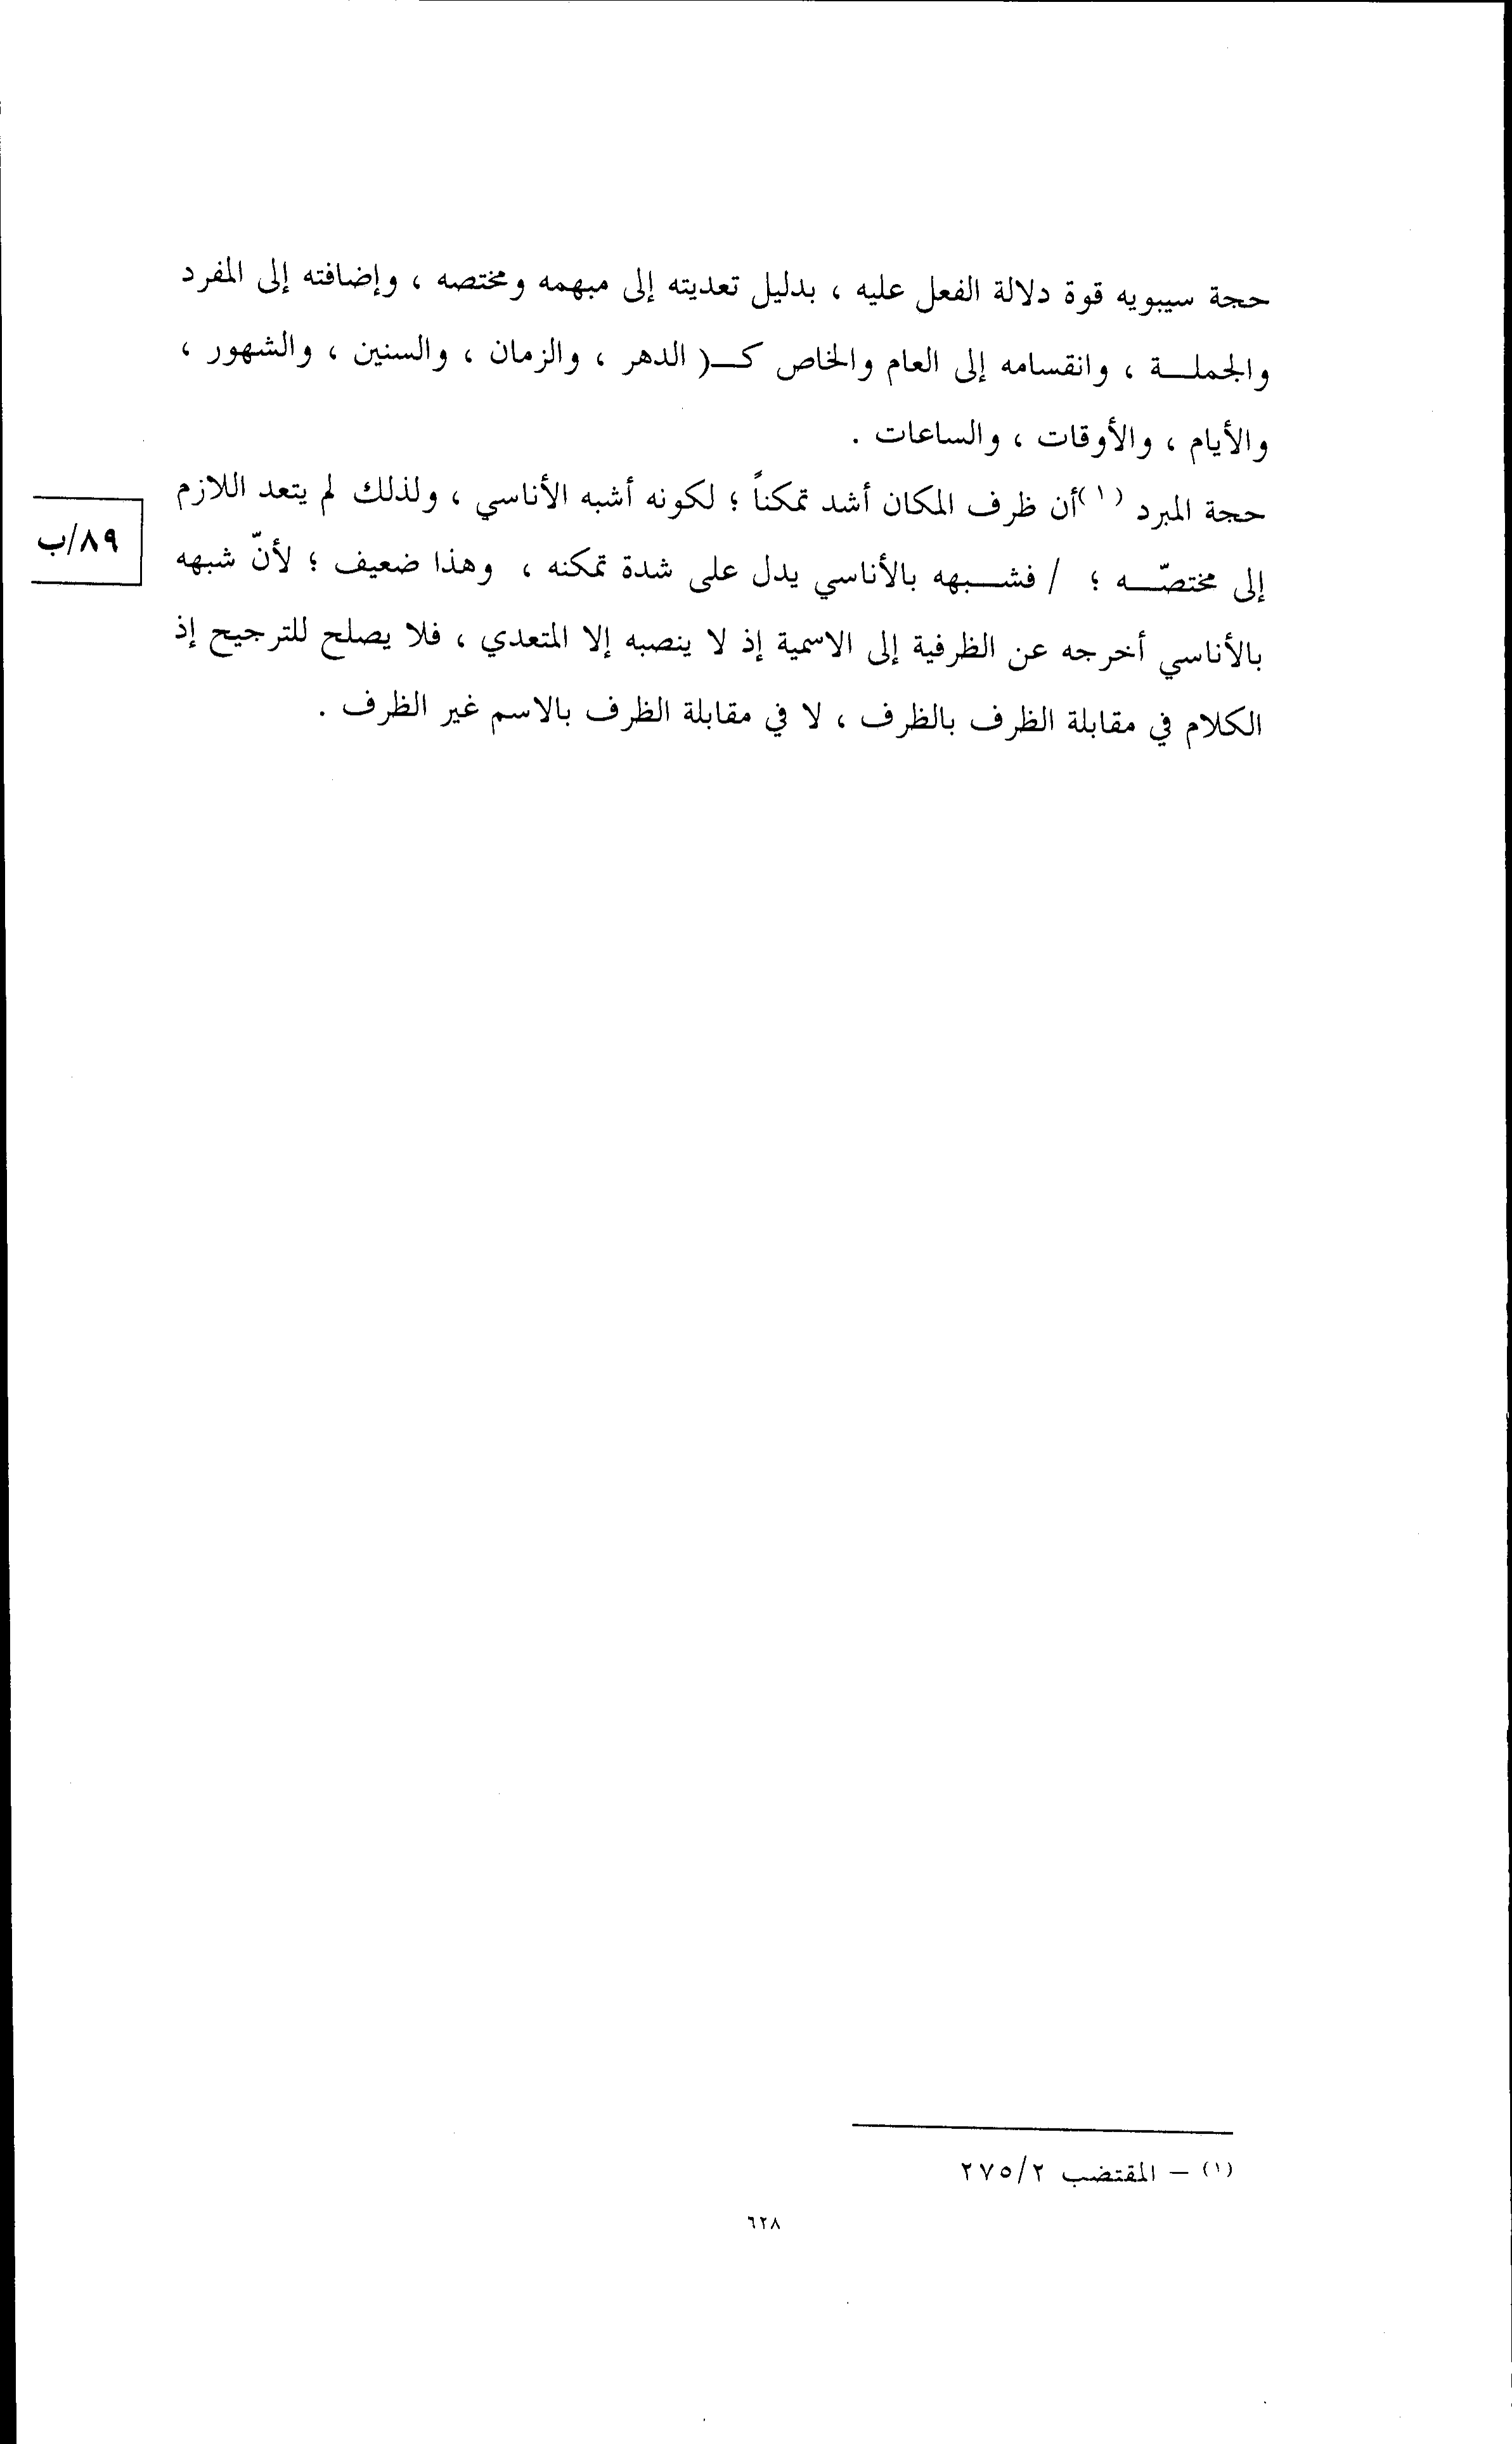 حجة سيبويه قوة دلالة الفعل عليه ، بدليل تعديته إلى مبهمه ومختصه ، وإضافته إلى المفرد
والجملـــة ، وانقسامه إلى العام والخاص كـــ( الدهر ، والزمان ، والسنين ، والشهور ،
والأيام ، والأوقات ، والساعات .
حجة المبرد (١)أن ظرف المكان أشد تمكناً ؛ لكونه أشبه الأناسي ، ولذلك لم يتعد اللازم
إلى مختصّـــه ؛ / فشـــبهه بالأناسي يدل على شدة تمكنه ، وهذا ضعيف ؛ لأنّ شبهه
٨٩/ب
بالأناسي أخرجه عن الظرفية إلى الاسمية إذ لا ينصبه إلا المتعدي ، فلا يصلح للترجيح إذ
الكلام في مقابلة الظرف بالظرف ، لا في مقابلة الظرف بالاسم غير الظرف .
(١) – المقتضب ٢/٢٧٥
٦٢٨